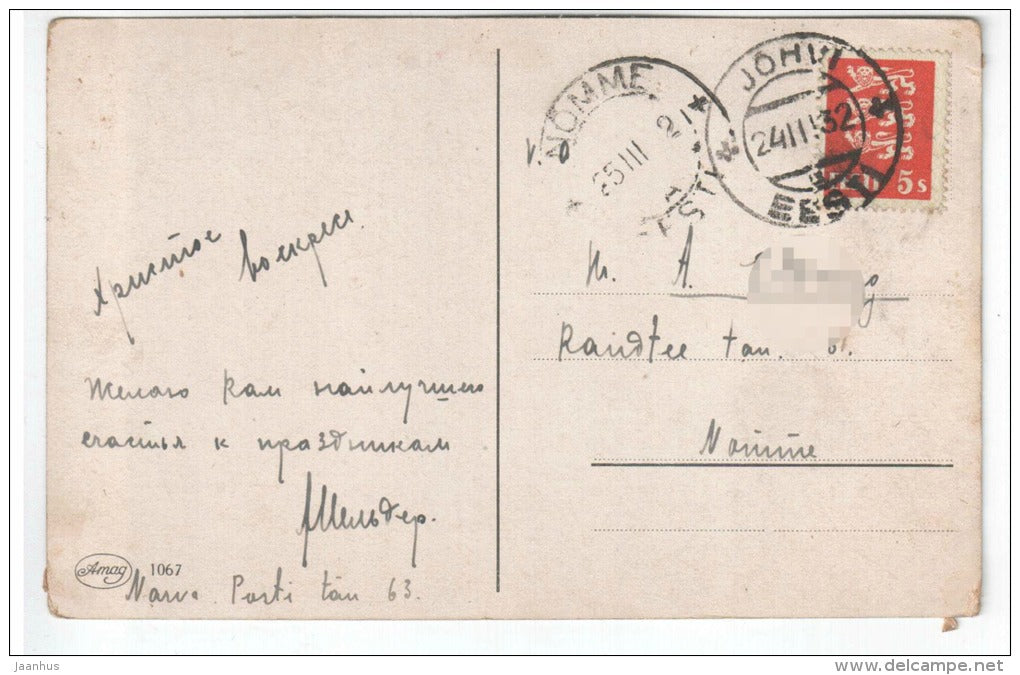 Христос
воскресе.
Желаю Вам наилучшего
счастья к праздникам
Amag 1067
Narva Posti tän 63.
NÕMME
25 III
JÕHVI
24 III 32
EESTI
EESTI 5s
A.
Raudtee tän.
Nõmme
Jaanhus
www.delcampe.net